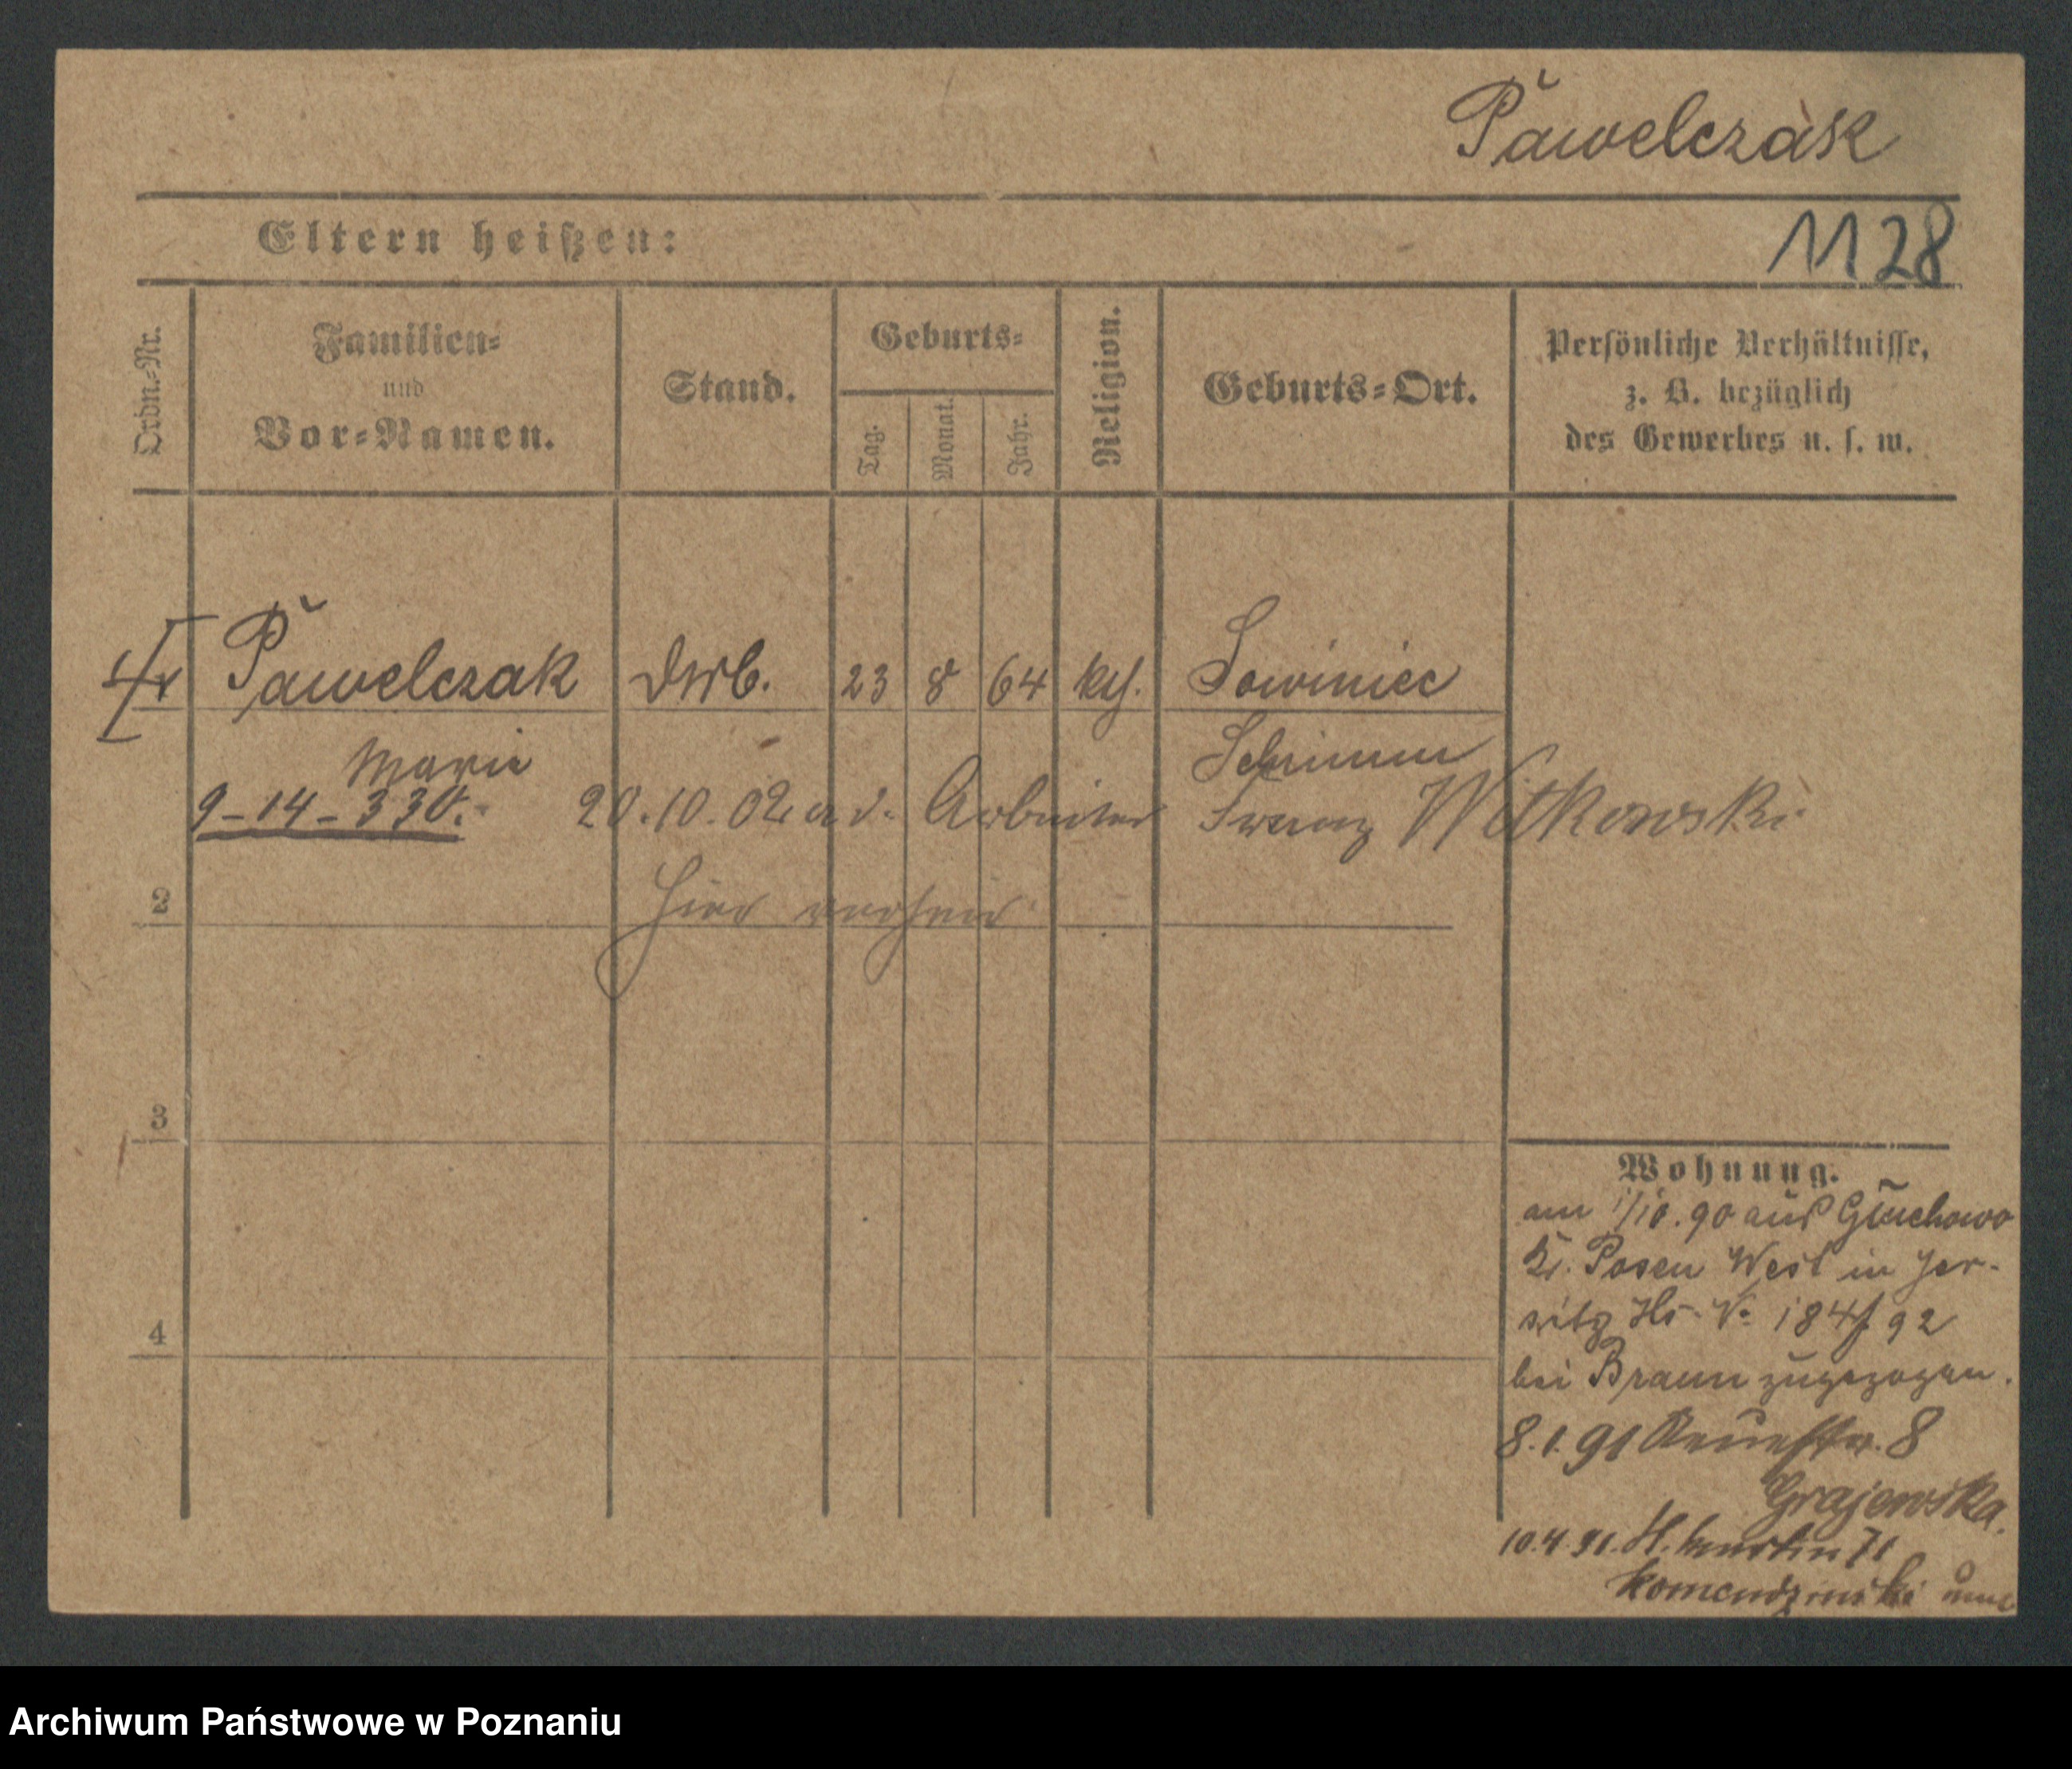 Pawelczak
Eltern heißen:
1128
Ordn.-Nr.
Familien-
und
Vor-Namen.
Stand.
Geburts-
Tag.
Monat.
Jahr.
Religion.
Geburts-Ort.
Persönliche Verhältnisse,
z. B. bezüglich
des Gewerbes u. s. w.
Pawelczak 23 8 64 kth. Sowiniec
Marie Schrimm
9-14-330. 20.10.02 a. d. Arbeiter Franz Witkowski
2 hier verheir.
3
4
Wohnung.
am 1/10.90 aus Gluchowo
Kr. Posen West in Jer-
sitz Hs. No 184/92
bei Braun zugezogen.
8.1.91 Neuestr. 8
Grajewska.
10.4.91. St. Martin 71
Komendzinski
Archiwum Państwowe w Poznaniu